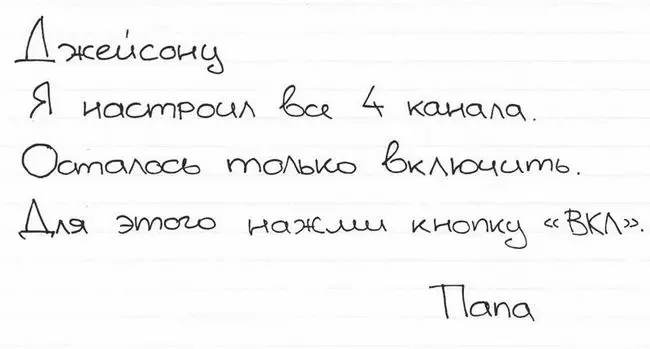 Джейсону
Я настроил все 4 канала.
Осталось только включить.
Для этого нажми кнопку «ВКЛ».
Папа